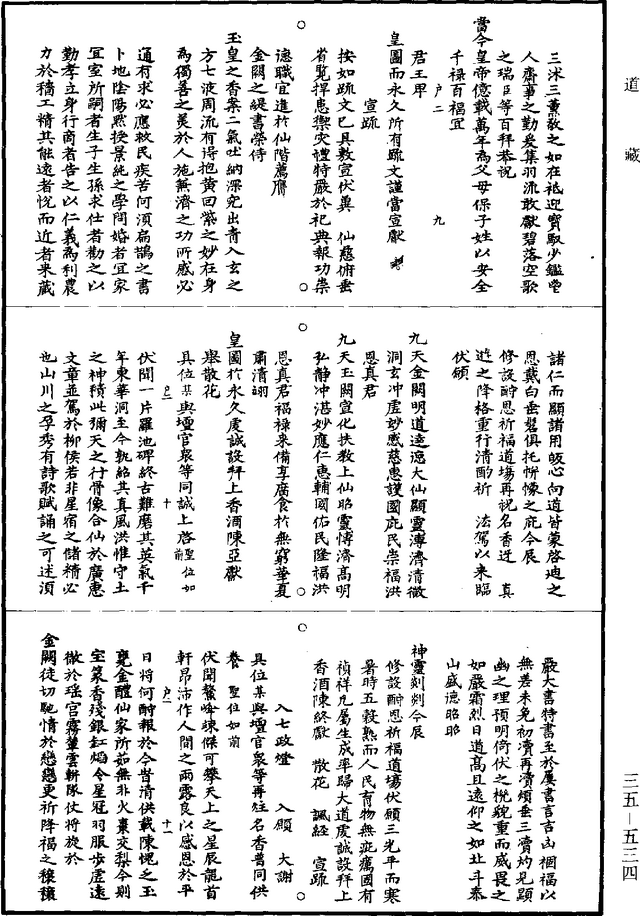 道藏
三沐三薰敬之如在祗迎寶馭少鑑堂
人齋事之勤爰集羽流敢獻碧落空歌
之瑞臣等百拜恭祝
當今皇帝億載萬年為父母保子姓以安全
千祿百福宜
戶二 九
君王甲
皇圖而永久所有䟽文謹當宣獻
宣䟽
按如䟽文已具敷宣伏冀 仙慈俯垂
省覽捍患禦灾禮特嚴於祀典報功崇
德職宜進於仙階薦膺
金闕之緹書榮侍
玉皇之香案二氣吐納深究出青入玄之
方七液周流有得抱黄回紫之妙在身
為獨善之灵於人施兼濟之功所感必
通有求必應救民疾苦何須扁鵲之書
卜地陰陽黙授景純之學問婚者宜家
宜室所嗣者生子生孫求仕者勸之以
勤孝立身行商者告之以仁義為利農
力於穡工精其能遠者恱而近者來藏
諸仁而顯諸用皈心向道皆蒙啓迪之
恩戴白垂髫俱托帡幪之庇今辰
修設酧恩祈福道塲再祝名香迓 真
遊之降格重行清酌祈 法駕以來臨
伏頋
九天金闕明道達德大仙顯靈溥濟清微
洞玄冲虛妙感慈惠護國庇民崇福洪
恩真君
九天玉闕宣化扶教上仙昭靈博濟高明
弘静冲湛妙應仁惠輔國佑民隆福洪
恩真君福禄來備享腐食於無窮華夏
肅清翊
皇圖於永久虔誠設拜上香酒陳亞獻
舉散花
具位某與壇官衆等同誠上啓聖位如前
戶二 十
伏聞一片羅池碑終古難磨其英氣千
年東華洞至今孰紹其真風洪惟守土
之神積此彌天之行骨像合仙於廣惠
文章並駕於柳侯若非星宿之儲精必
也山川之孕秀有詩歌賦誦之可述須
嚴大書特書至於屢書言吉凶梱福以
無差未免初凟再凟煩垂三凟灼見顕
幽之理預明倚伏之機貌重而威畏之
如嚴霜烈日道高且遠仰之如北斗泰
山盛德昭昭
神靈剡剡今辰
修設酧恩祈福道塲伏頋三光平而寒
暑時五穀熟而人民育物無疵癘國有
禎祥凡屬生成率歸大道虔誠設拜上
香酒陳終獻 散花 諷經 宣䟽
入七政燈 入頋 大謝
具位某與壇官衆等再炷名香普同供
養 聖位如前
伏聞鰲峰竦傑可攀天上之星辰龍首
軒昂沛作人間之雨露良以感恩於平
戶二 十一
日將何酧報於今旹清供載陳堄之玉
甕金醴仙家所茹無非火棗交梨今則
寶篆香殘銀釭焰令星冠羽服步虛遠
徹於瑶宫霧輦雲軿隊仗将旋於
金闕徒切馳情於戀戀更祈降福之穰穰
三五－五三四